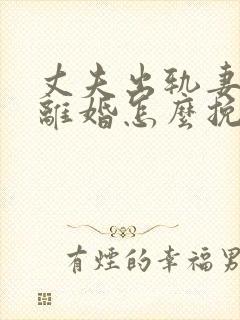 丈夫出軌妻
離婚怎麼挽
有煙的幸福男